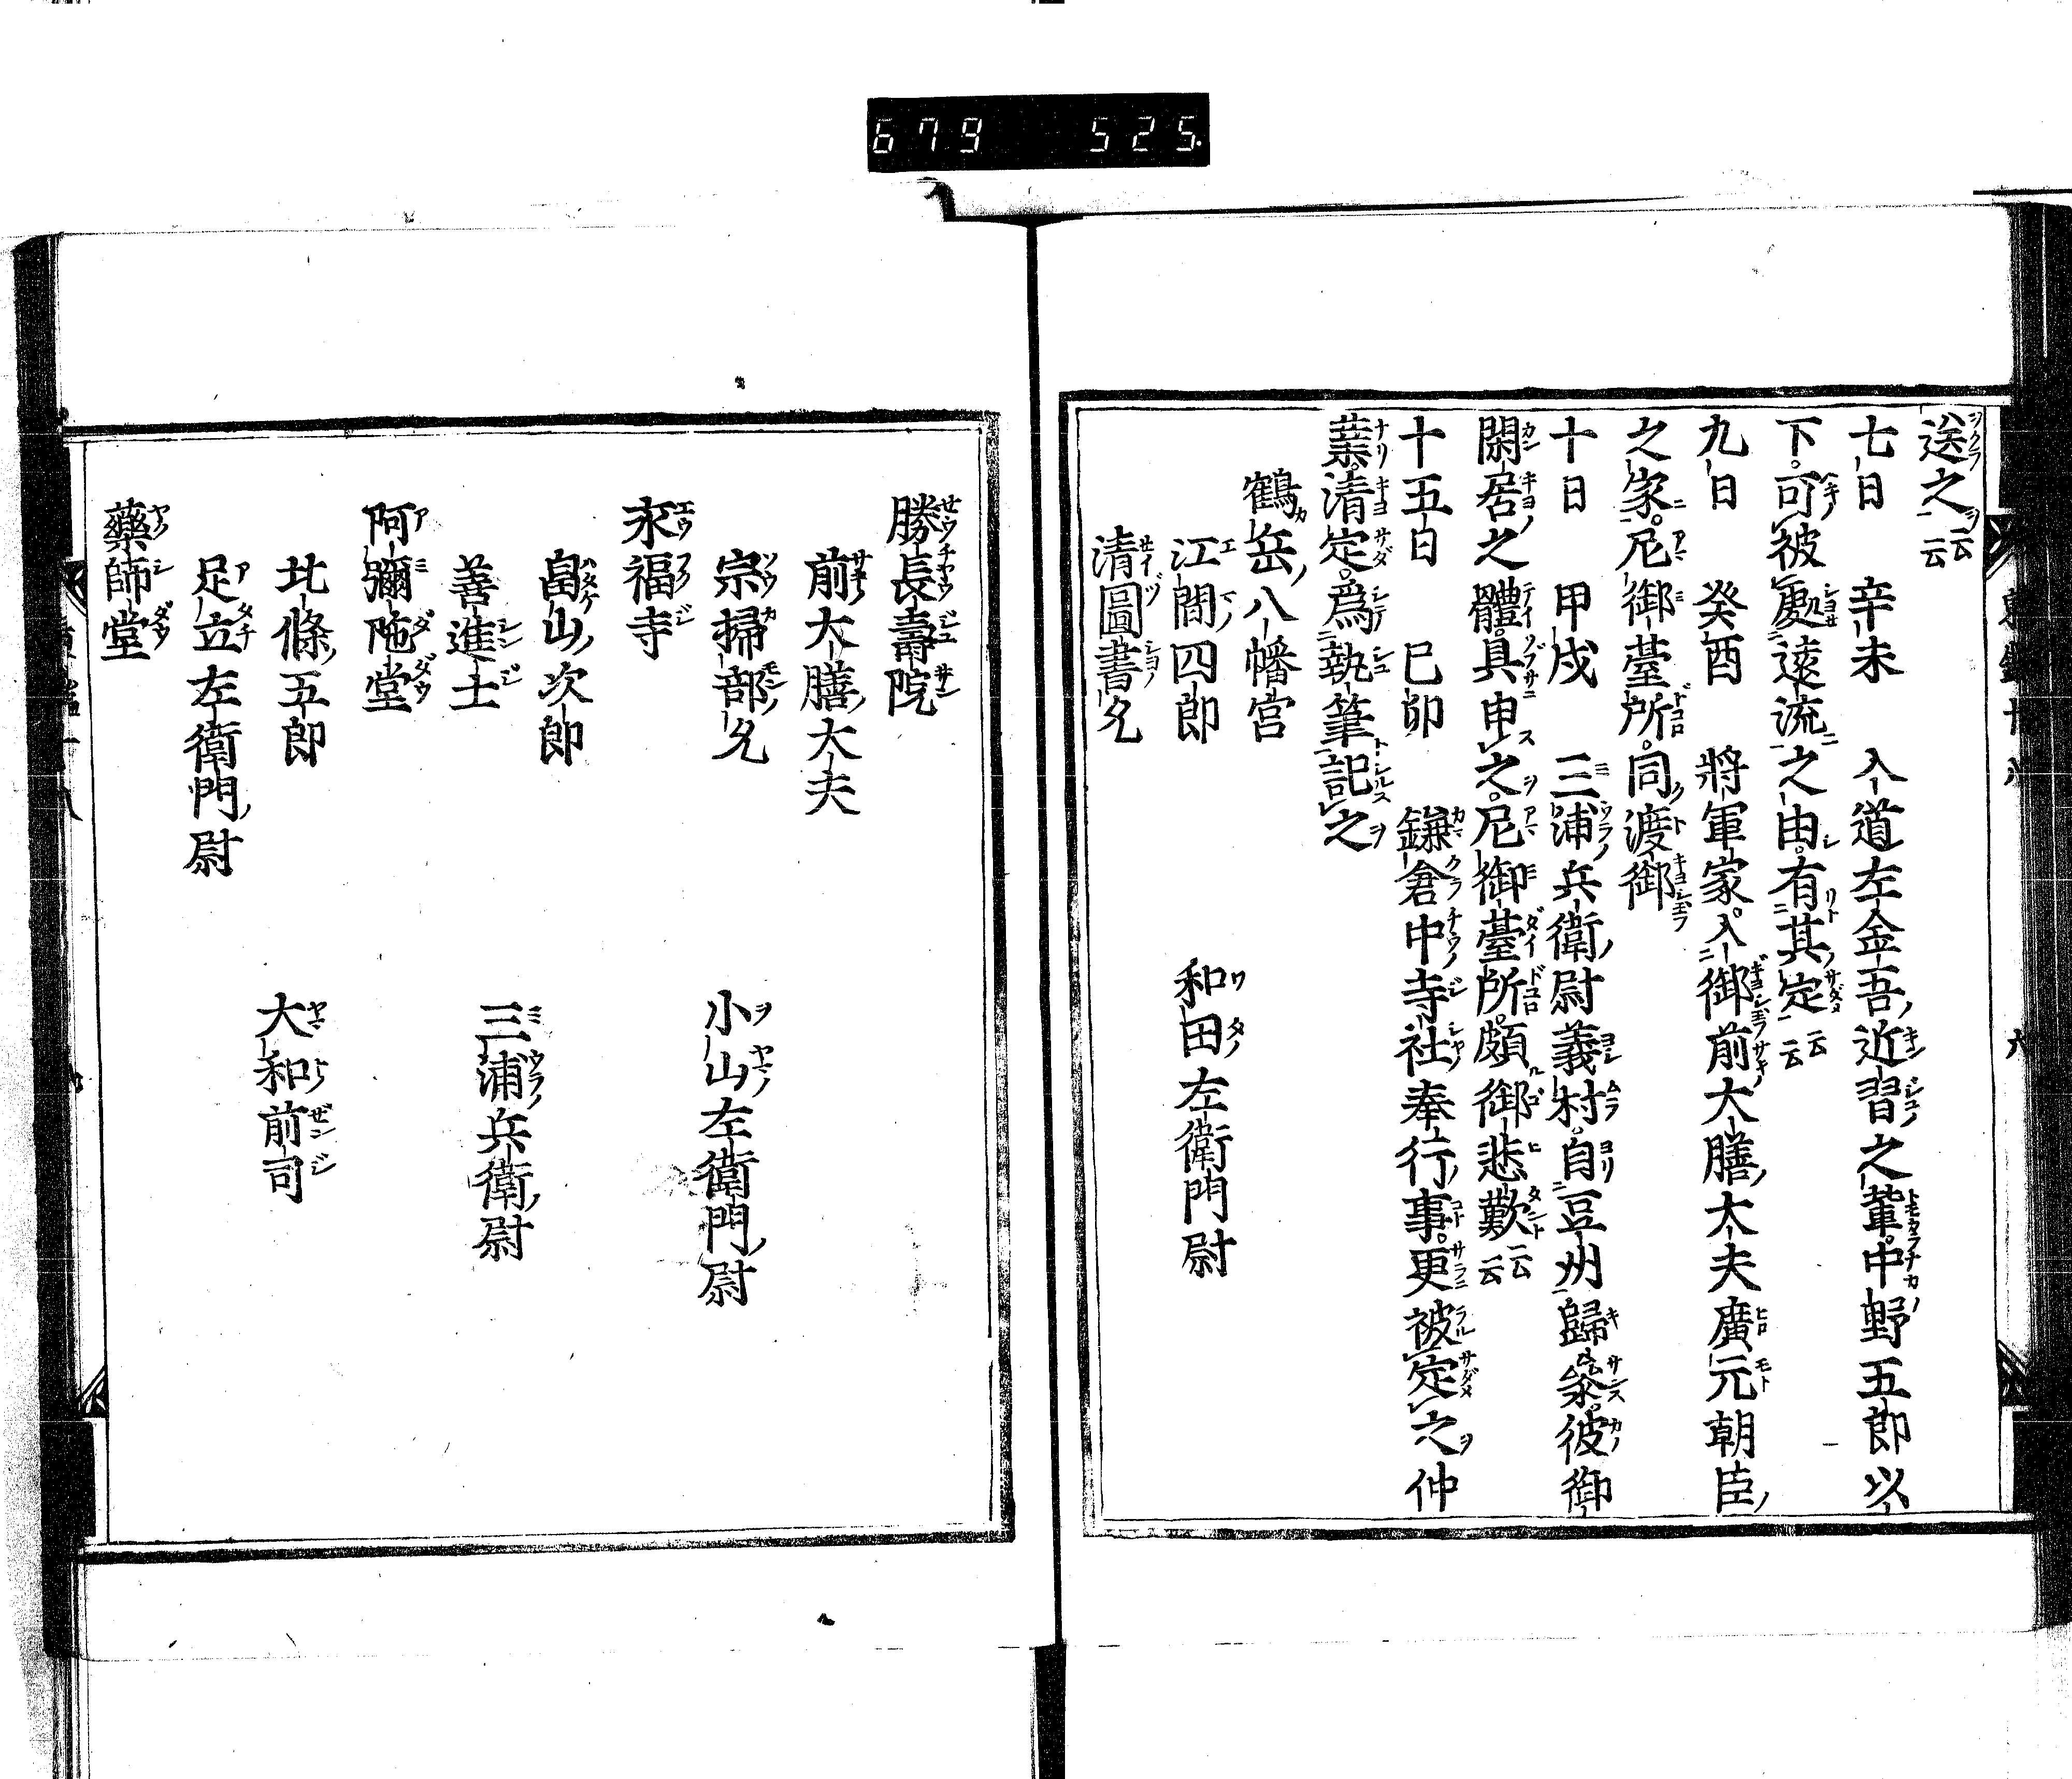 679 525.
送之云云
七日 辛未 入道左金吾近習之輩中野五郎以
下可被處遠流之由有其定云云
九日 癸酉 將軍家入御前大膳大夫廣元朝臣
之家尼御臺所同渡御
十日 甲戌 三浦兵衛尉義村自豆州歸參彼御
閑居之體具申之尼御臺所頗御悲歎云云
十五日 己卯 鎌倉中寺社奉行事更被定之仲
業清定爲執筆記之
鶴岳八幡宮
江間四郎 和田左衛門尉
清圖書允
勝長壽院
前大膳大夫
宗掃部允 小山左衛門尉
永福寺
畠山次郎
善進士 三浦兵衛尉
阿彌陁堂
北條五郎 大和前司
足立左衛門尉
藥師堂